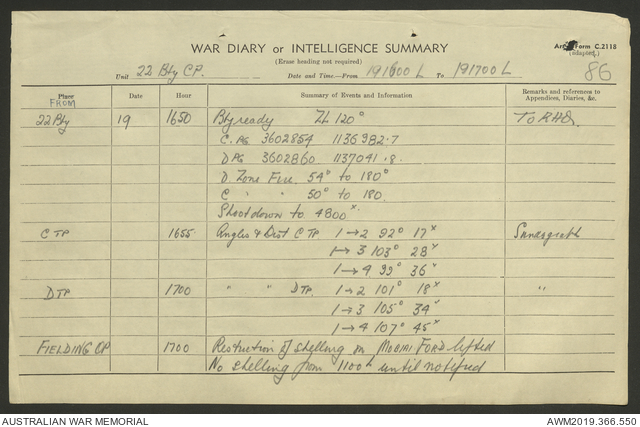 WAR DIARY or INTELLIGENCE SUMMARY
Form C.2118
(Adapted)
(Erase heading not required)
86
Unit 22 Bty C.P. Date and Time.—From 191600 L To 191700 L
Place Date Hour Summary of Events and Information Remarks and references to Appendices, Diaries, &c.
FROM
22 Bty 19 1650 Bty ready ZL 120° To RHQ.
C. Pg 3602854 1136982.7
D Pg 3602860 1137041.8.
D. Zone Fire. 54° to 180°
C " " 50° to 180.
Shoot down to 4800ˣ
C TP 1655 Angles & Dist C TP 1→2 92° 17ˣ
1→3 103° 28ˣ
1→4 99° 36ˣ
D TP 1700 " " D TP. 1→2 101° 18ˣ "
1→3 105° 34ˣ
1→4 107° 45ˣ
FIELDING OP 1700 Restriction of shelling on MOBIAI FORD lifted
No shelling from 1100L until notified
AUSTRALIAN WAR MEMORIAL AWM2019.366.550